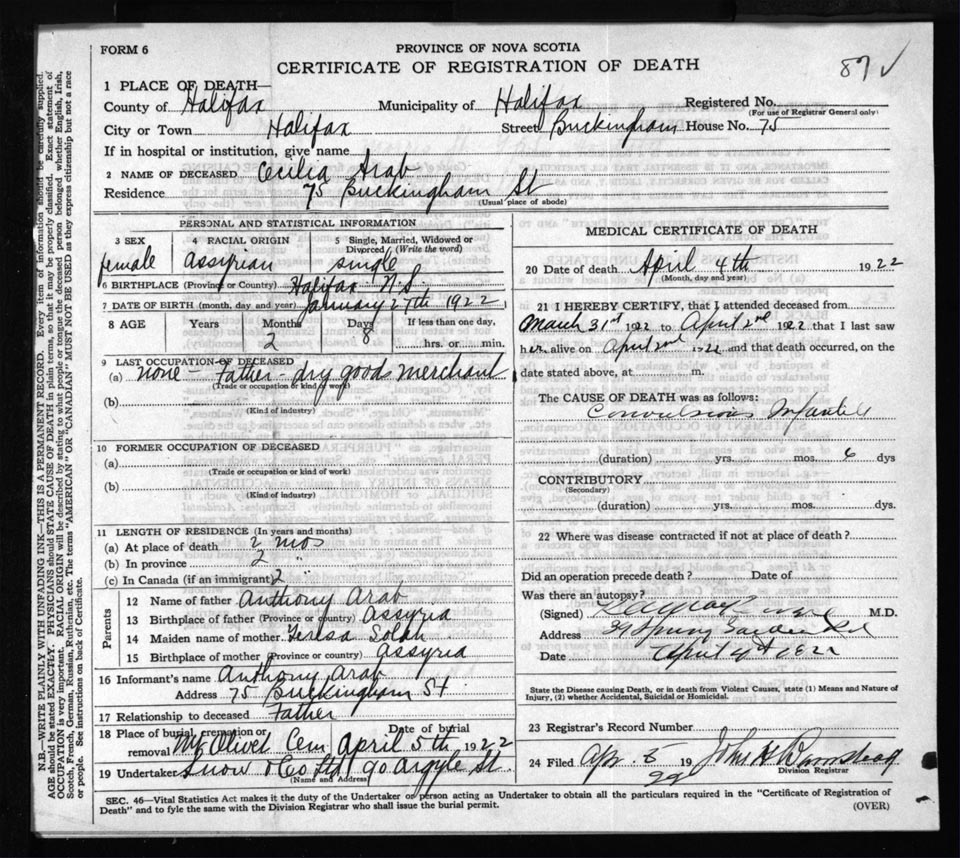 FORM 6
PROVINCE OF NOVA SCOTIA
CERTIFICATE OF REGISTRATION OF DEATH
87 ✓
1 PLACE OF DEATH—
County of Halifax Municipality of Halifax Registered No.
(For use of Registrar General only)
City or Town Halifax Street Buckingham House No. 75
If in hospital or institution, give name
2 NAME OF DECEASED Cecilia Arab
Residence 75 Buckingham St
(Usual place of abode)
PERSONAL AND STATISTICAL INFORMATION
3 SEX 4 RACIAL ORIGIN 5 Single, Married, Widowed or Divorced (Write the word)
female assyrian single
6 BIRTHPLACE (Province or Country) Halifax N.S.
7 DATE OF BIRTH (month, day and year) January 27th 1922
8 AGE Years Months Days If less than one day,
2 8 hrs. or min.
9 LAST OCCUPATION OF DECEASED
(a) none - Father - dry goods merchant
(Trade or occupation or kind of work)
(b)
(Kind of industry)
10 FORMER OCCUPATION OF DECEASED
(a)
(Trade or occupation or kind of work)
(b)
(Kind of industry)
11 LENGTH OF RESIDENCE (In years and months)
(a) At place of death 2 mos
(b) In province 2 "
(c) In Canada (if an immigrant) 2 "
Parents
12 Name of father Anthony Arab
13 Birthplace of father (Province or Country) Assyria
14 Maiden name of mother Teresa Solah
15 Birthplace of mother (Province or country) Assyria
16 Informant's name Anthony Arab
Address 75 Buckingham St.
17 Relationship to deceased Father
18 Place of burial, cremation or removal Mt Olivet Cem Date of burial April 5th 1922
19 Undertaker Snow & Co Ltd 90 Argyle St
(Name and Address)
MEDICAL CERTIFICATE OF DEATH
20 Date of death April 4th 1922
(Month, day and year)
21 I HEREBY CERTIFY, that I attended deceased from
March 31st 1922 to April 2nd 1922 that I last saw
her alive on April 2nd 1922 and that death occurred, on the
date stated above, at m.
The CAUSE OF DEATH was as follows:
Convulsions Infantile
(duration) yrs. mos. 6 dys
CONTRIBUTORY
(Secondary)
(duration) yrs. mos. dys.
22 Where was disease contracted if not at place of death?
Did an operation precede death? Date of
Was there an autopsy?
(Signed) M.D.
Address 39 Spring Garden Rd
Date April 4th 1922
State the Disease causing Death, or in death from Violent Causes, state (1) Means and Nature of Injury, (2) whether Accidental, Suicidal or Homicidal.
23 Registrar's Record Number
24 Filed Apr. 5 19 22 John H Barnstead
Division Registrar
SEC. 46—Vital Statistics Act makes it the duty of the Undertaker or person acting as Undertaker to obtain all the particulars required in the "Certificate of Registration of
Death" and to fyle the same with the Division Registrar who shall issue the burial permit.
(OVER)
N.B.—WRITE PLAINLY WITH UNFADING INK—THIS IS A PERMANENT RECORD. Every item of information should be carefully supplied.
AGE should be stated EXACTLY. PHYSICIANS should STATE CAUSE OF DEATH in plain terms, so that it may be properly classified. Exact statement of
OCCUPATION is very important. RACIAL ORIGIN will be described by stating to what people or tongue the deceased person belonged, whether English, Irish,
Scotch, French, German, Russian, Ruthenian, etc. The terms "AMERICAN" OR "CANADIAN" MUST NOT BE USED as they express citizenship but not a race
or people. See instructions on back of Certificate.